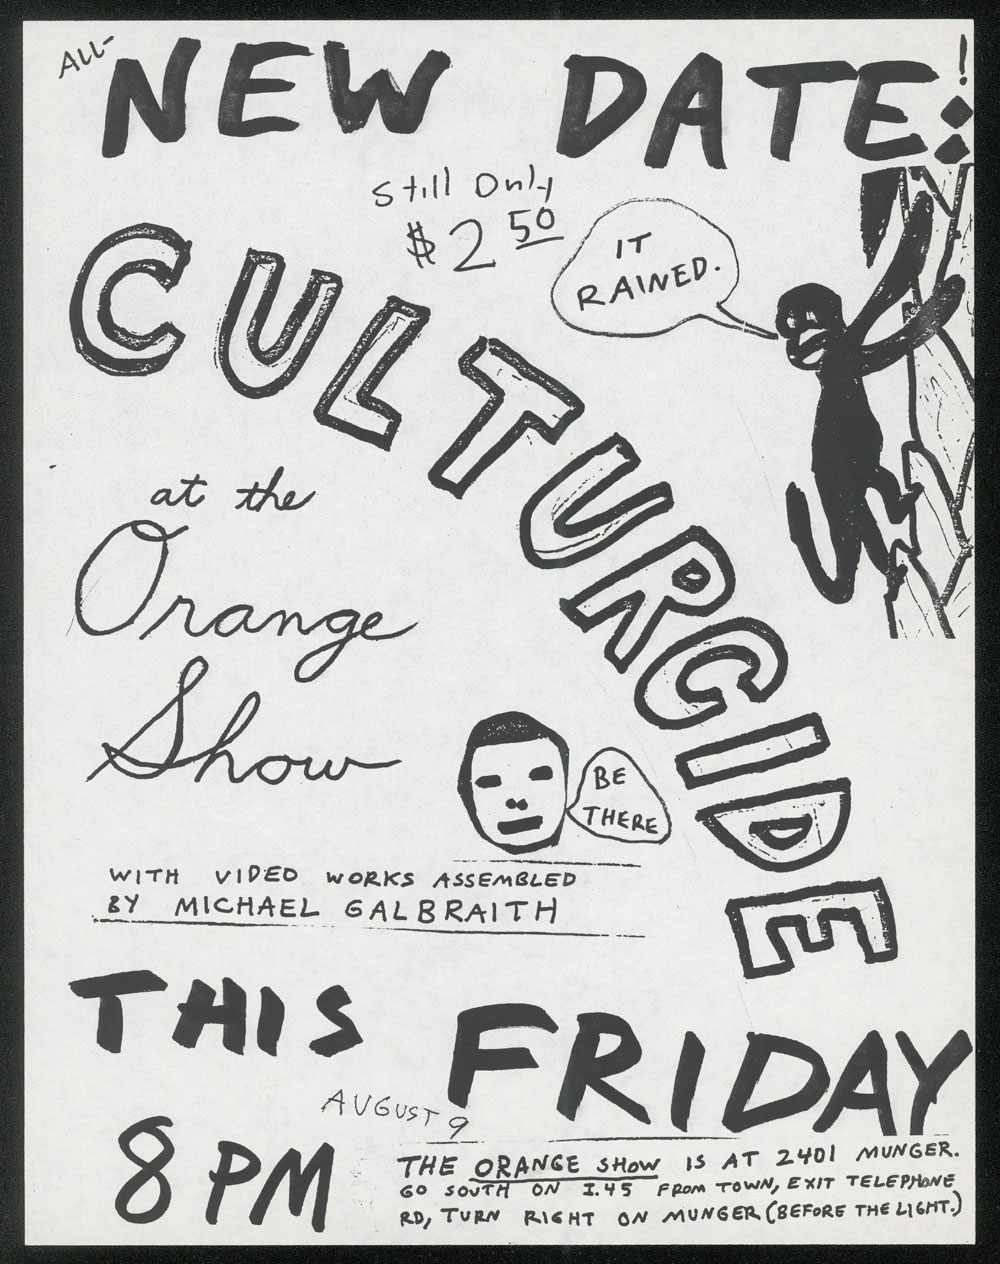 ALL-
NEW DATE:!
Still Only
$2 50
IT
RAINED.
CULTURCIDE
at the
Orange
Show
BE
THERE
WITH VIDEO WORKS ASSEMBLED
BY MICHAEL GALBRAITH
THIS FRIDAY
AUGUST 9
8 PM
THE ORANGE SHOW IS AT 2401 MUNGER.
GO SOUTH ON I.45 FROM TOWN, EXIT TELEPHONE
RD, TURN RIGHT ON MUNGER (BEFORE THE LIGHT.)